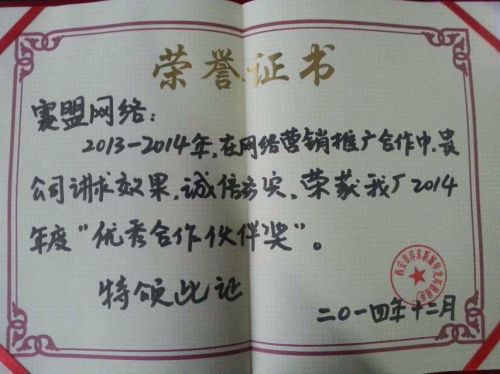 荣誉证书
赛盟网络:
2013-2014年,在网络营销推广合作中,贵
公司讲求效果,诚信务实,荣获我厂2014
年度“优秀合作伙伴奖”。
特颁此证
二〇一四年十二月